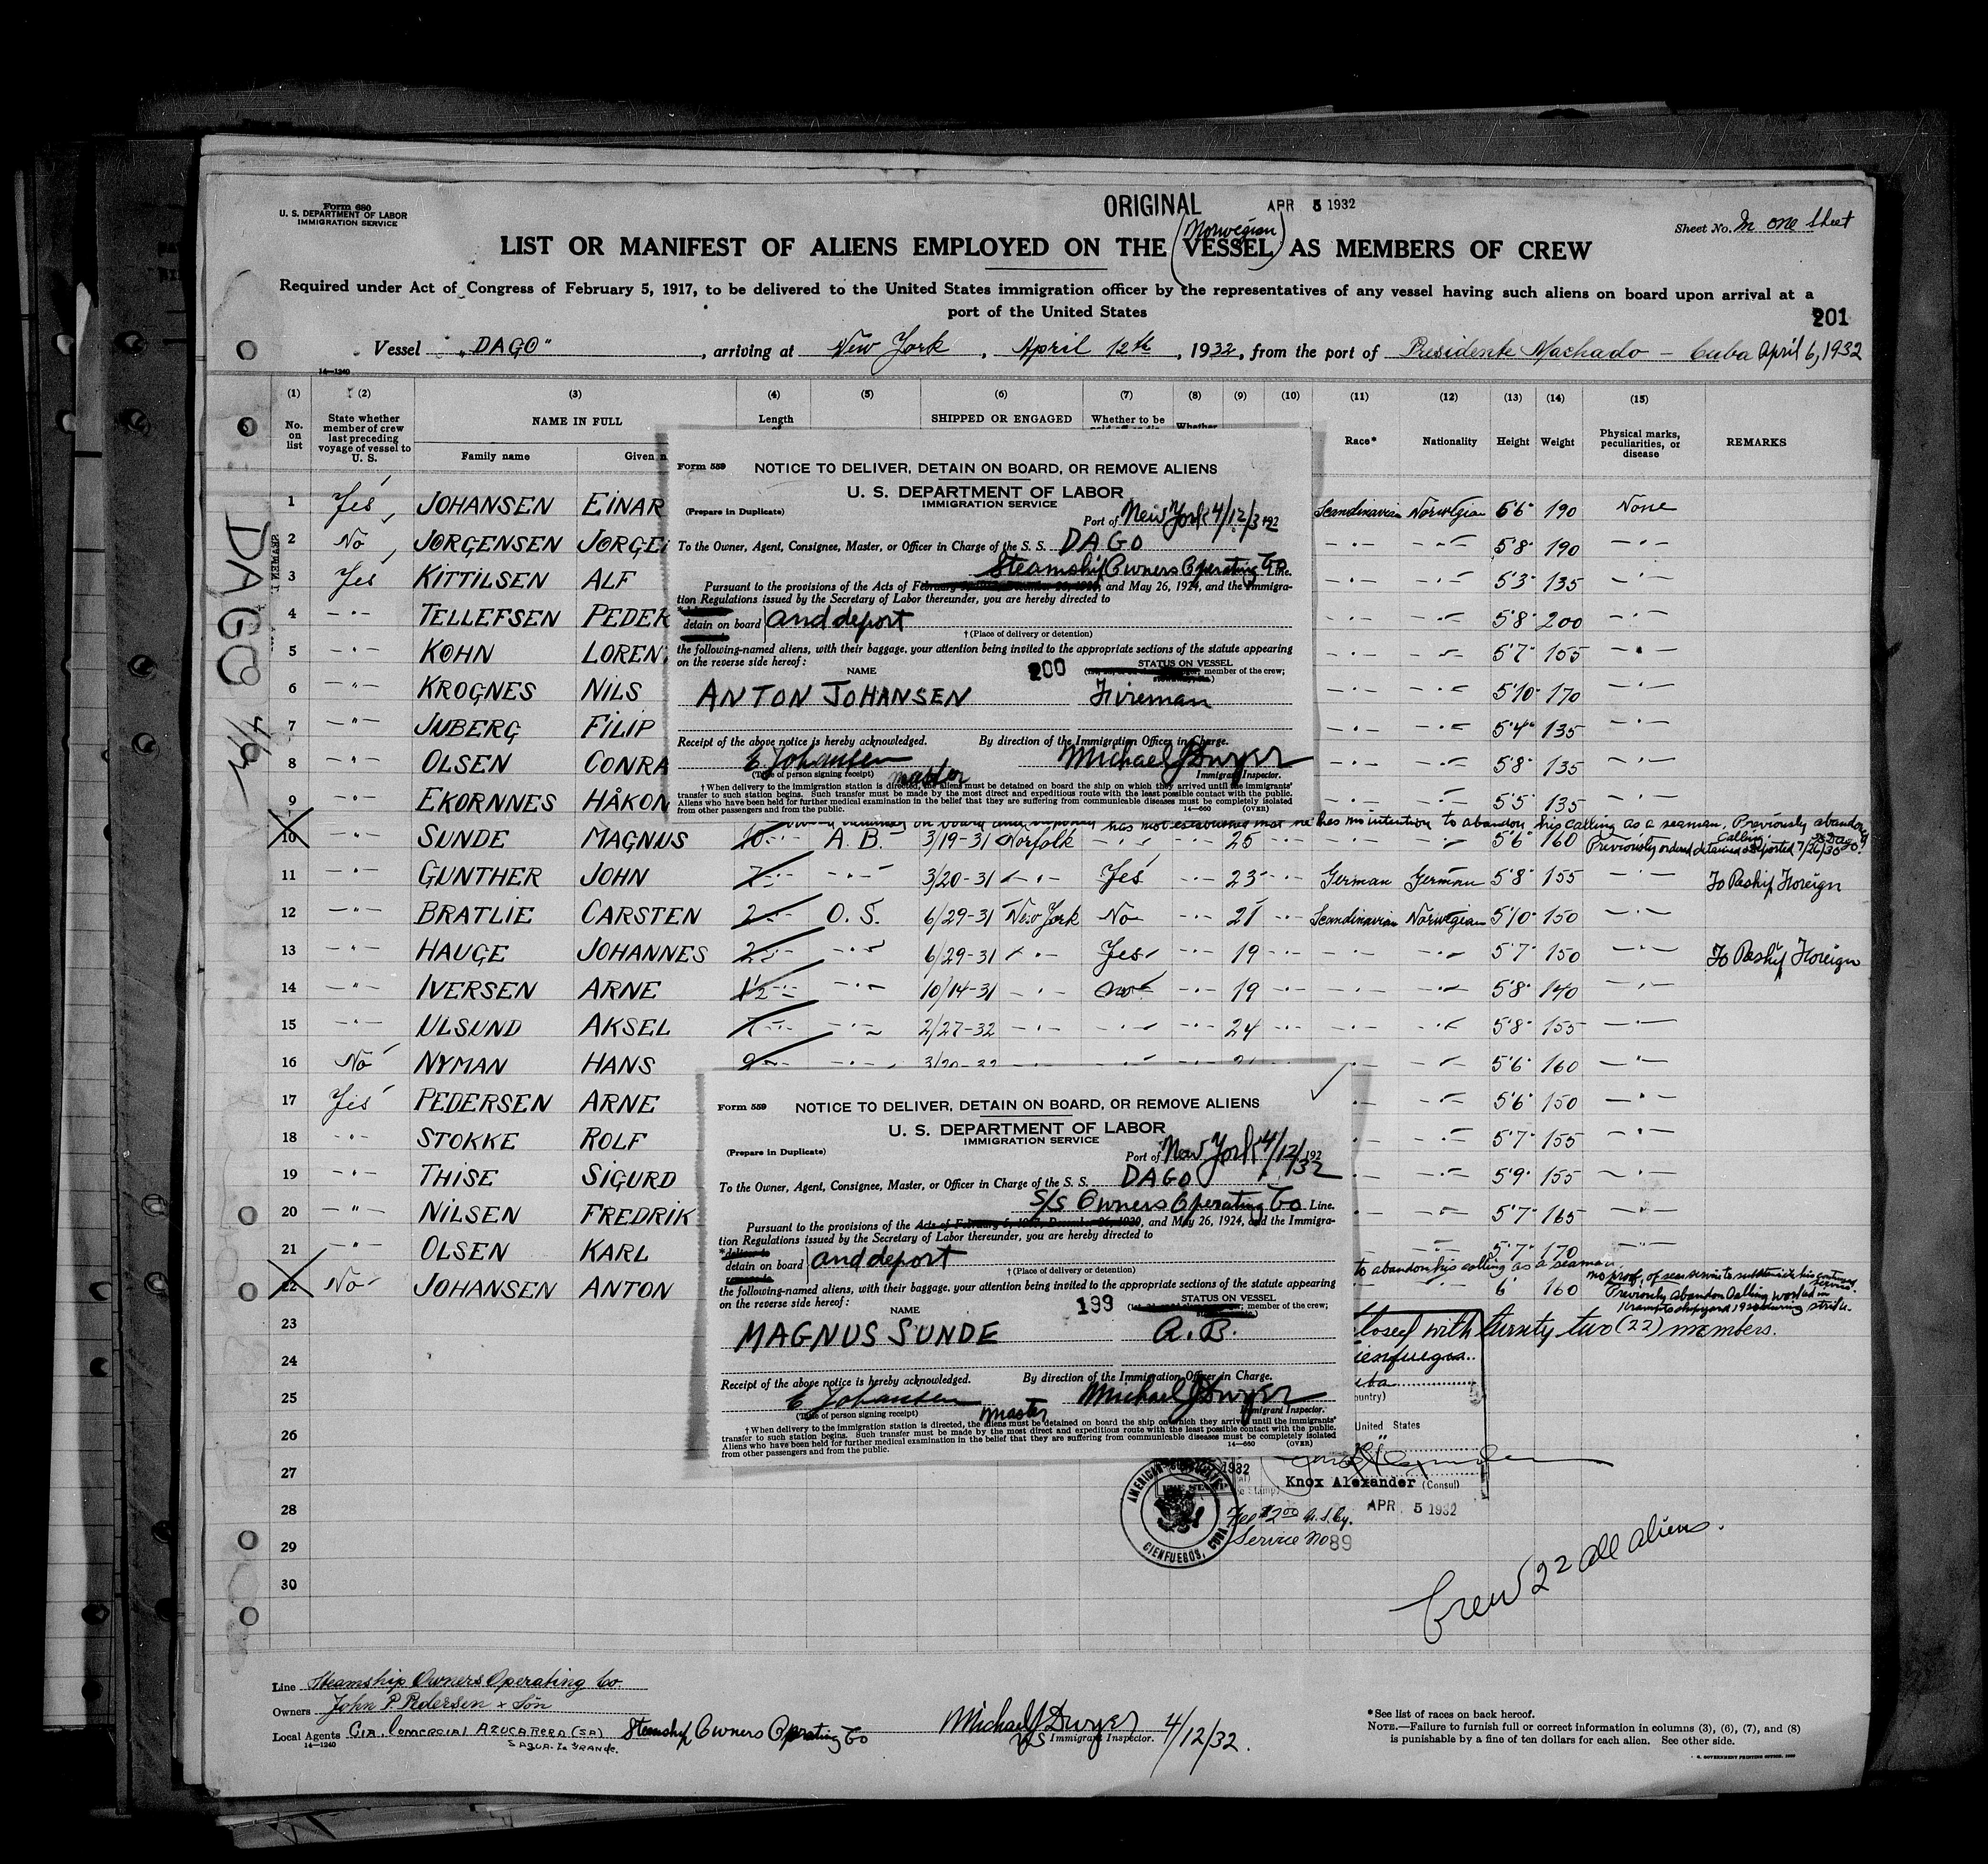 Form 680
U. S. DEPARTMENT OF LABOR
IMMIGRATION SERVICE
ORIGINAL
APR 5 1932
Sheet No. In one Sheet
(Norwegian)
LIST OR MANIFEST OF ALIENS EMPLOYED ON THE VESSEL AS MEMBERS OF CREW
Required under Act of Congress of February 5, 1917, to be delivered to the United States immigration officer by the representatives of any vessel having such aliens on board upon arrival at a
port of the United States
201
Vessel "DAGO", arriving at New York, April 12th, 1932, from the port of Presidente Machado - Cuba April 6, 1932
14—1240
(1) (2) (3) (4) (5) (6) (7) (8) (9) (10) (11) (12) (13) (14) (15)
No. on list
State whether member of crew last preceding voyage of vessel to U. S.
NAME IN FULL
Family name
Given n
Length
SHIPPED OR ENGAGED
Whether to be
Whether
Race*
Nationality
Height
Weight
Physical marks, peculiarities, or disease
REMARKS
DAGO
1 Yes JOHANSEN EINAR Scandinavian Norwegian 5'6" 190 None
2 No JORGENSEN JORGE — " — — " — 5'8" 190 — " —
3 Yes KITTILSEN ALF — " — — " — 5'3" 135 — " —
4 — " — TELLEFSEN PEDER — " — — " — 5'8" 200 — " —
5 — " — KOHN LOREN — " — — " — 5'7" 155 — " —
6 — " — KROGNES NILS — " — — " — 5'10" 170 — " —
7 — " — JUBERG FILIP — " — — " — 5'4" 135 — " —
8 — " — OLSEN CONRA — " — — " — 5'8" 135 — " —
9 — " — EKORNNES HÅKON — " — — " — 5'5" 135 — " —
has not established that he has no intention to abandon his calling as a seaman. Previously abandoned
calling
10 — " — SUNDE MAGNUS 10 — " — A. B. 3/19-31 Norfolk — " — — " — 25 — " — — " — 5'6" 160 Previously ordered detained & deported 7/26/30
11 — " — GUNTHER JOHN 7 — " — — " — 3/20-31 — " — Yes — " — 23 — " — German German 5'8" 155 — " — To Reship Foreign
12 — " — BRATLIE CARSTEN 2 — " — O. S. 6/29-31 New York No — " — 21 — " — Scandinavian Norwegian 5'10" 150 — " —
13 — " — HAUGE JOHANNES 2 — " — — " — 6/29-31 — " — Yes — " — 19 — " — — " — — " — 5'7" 150 — " — To Reship Foreign
14 — " — IVERSEN ARNE 1½ — " — — " — 10/14-31 — " — No — " — 19 — " — — " — — " — 5'8" 140 — " —
15 — " — ULSUND AKSEL 7 — " — — " — 2/27-32 — " — — " — — " — 24 — " — — " — — " — 5'8" 155 — " —
16 No NYMAN HANS 9 — " — — " — 3/20-32 — " — 5'6" 160 — " —
17 Yes PEDERSEN ARNE — " — — " — 5'6" 150 — " —
18 — " — STOKKE ROLF — " — — " — 5'7" 155 — " —
19 — " — THISE SIGURD — " — — " — 5'9" 155 — " —
20 — " — NILSEN FREDRIK — " — — " — 5'7" 165 — " —
21 — " — OLSEN KARL — " — — " — 5'7" 170 — " —
to abandon his calling as a seaman.
22 No JOHANSEN ANTON 6' 160
no proof of sea service to substantiate his continued service.
Previously abandon Calling worked in
shipyard 1920 during strike.
23
24
25
26
27
28
29
30
Form 559 NOTICE TO DELIVER, DETAIN ON BOARD, OR REMOVE ALIENS
U. S. DEPARTMENT OF LABOR
IMMIGRATION SERVICE
(Prepare in Duplicate)
Port of New York 4/12/32 192
To the Owner, Agent, Consignee, Master, or Officer in Charge of the S. S. DAGO
Steamship Owners Operating Co Line.
Pursuant to the provisions of the Acts of February 5, 1917, December 26, 1920, and May 26, 1924, and the Immigra-
tion Regulations issued by the Secretary of Labor thereunder, you are hereby directed to
detain on board } and deport
† (Place of delivery or detention)
the following-named aliens, with their baggage, your attention being invited to the appropriate sections of the statute appearing
on the reverse side hereof:
NAME 200 STATUS ON VESSEL
member of the crew;
ANTON JOHANSEN Fireman
Receipt of the above notice is hereby acknowledged. By direction of the Immigration Officer in Charge.
E Johansen Michael J Dwyer
(Title of person signing receipt) master Immigrant Inspector.
† When delivery to the immigration station is directed, the aliens must be detained on board the ship on which they arrived until the immigrants'
transfer to such station begins. Such transfer must be made by the most direct and expeditious route with the least possible contact with the public.
Aliens who have been held for further medical examination in the belief that they are suffering from communicable diseases must be completely isolated
from other passengers and from the public. 14—660 (OVER)
Form 559 NOTICE TO DELIVER, DETAIN ON BOARD, OR REMOVE ALIENS
U. S. DEPARTMENT OF LABOR
IMMIGRATION SERVICE
(Prepare in Duplicate)
Port of New York 4/12/32 192
To the Owner, Agent, Consignee, Master, or Officer in Charge of the S. S. DAGO
S/S Owners Operating Co Line.
Pursuant to the provisions of the Acts of February 5, 1917, December 26, 1920, and May 26, 1924, and the Immigra-
tion Regulations issued by the Secretary of Labor thereunder, you are hereby directed to
*deliver to
detain on board } and deport
remove to
† (Place of delivery or detention)
the following-named aliens, with their baggage, your attention being invited to the appropriate sections of the statute appearing
on the reverse side hereof:
NAME 199 STATUS ON VESSEL
member of the crew;
MAGNUS SUNDE A. B.
Receipt of the above notice is hereby acknowledged. By direction of the Immigration Officer in Charge.
E Johansen Michael J Dwyer
(Title of person signing receipt) master Immigrant Inspector.
† When delivery to the immigration station is directed, the aliens must be detained on board the ship on which they arrived until the immigrants'
transfer to such station begins. Such transfer must be made by the most direct and expeditious route with the least possible contact with the public.
Aliens who have been held for further medical examination in the belief that they are suffering from communicable diseases must be completely isolated
from other passengers and from the public. 14—660 (OVER)
losed with twenty two (22) members.
ienfuegos
uba
ountry)
United States
Knox Alexander (Consul)
APR 5 1932
AMERICAN CONSULATE
CIENFUEGOS, CUBA
1932
Fee $2.00 U.S.Cy.
Service No 89
Crew 22 all aliens.
Line Steamship Owners Operating Co
Owners John P. Pedersen & Sön
Local Agents CIA. COMERCIAL AZUCARERA (SA) Steamship Owners Operating Co
SAGUA LA GRANDE.
14—1240
Michael J Dwyer 4/12/32.
US Immigrant Inspector.
*See list of races on back hereof.
NOTE.—Failure to furnish full or correct information in columns (3), (6), (7), and (8)
is punishable by a fine of ten dollars for each alien. See other side.
U. S. GOVERNMENT PRINTING OFFICE